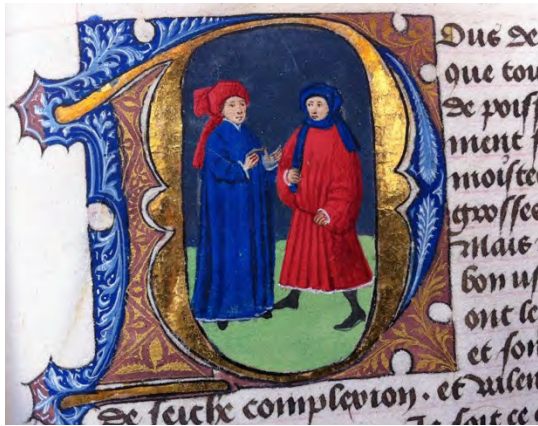 ous de
que tou
de poiss
ment
moiste
grosses
Mais
bon us
ont le
et son
de seiche complexion . et valen